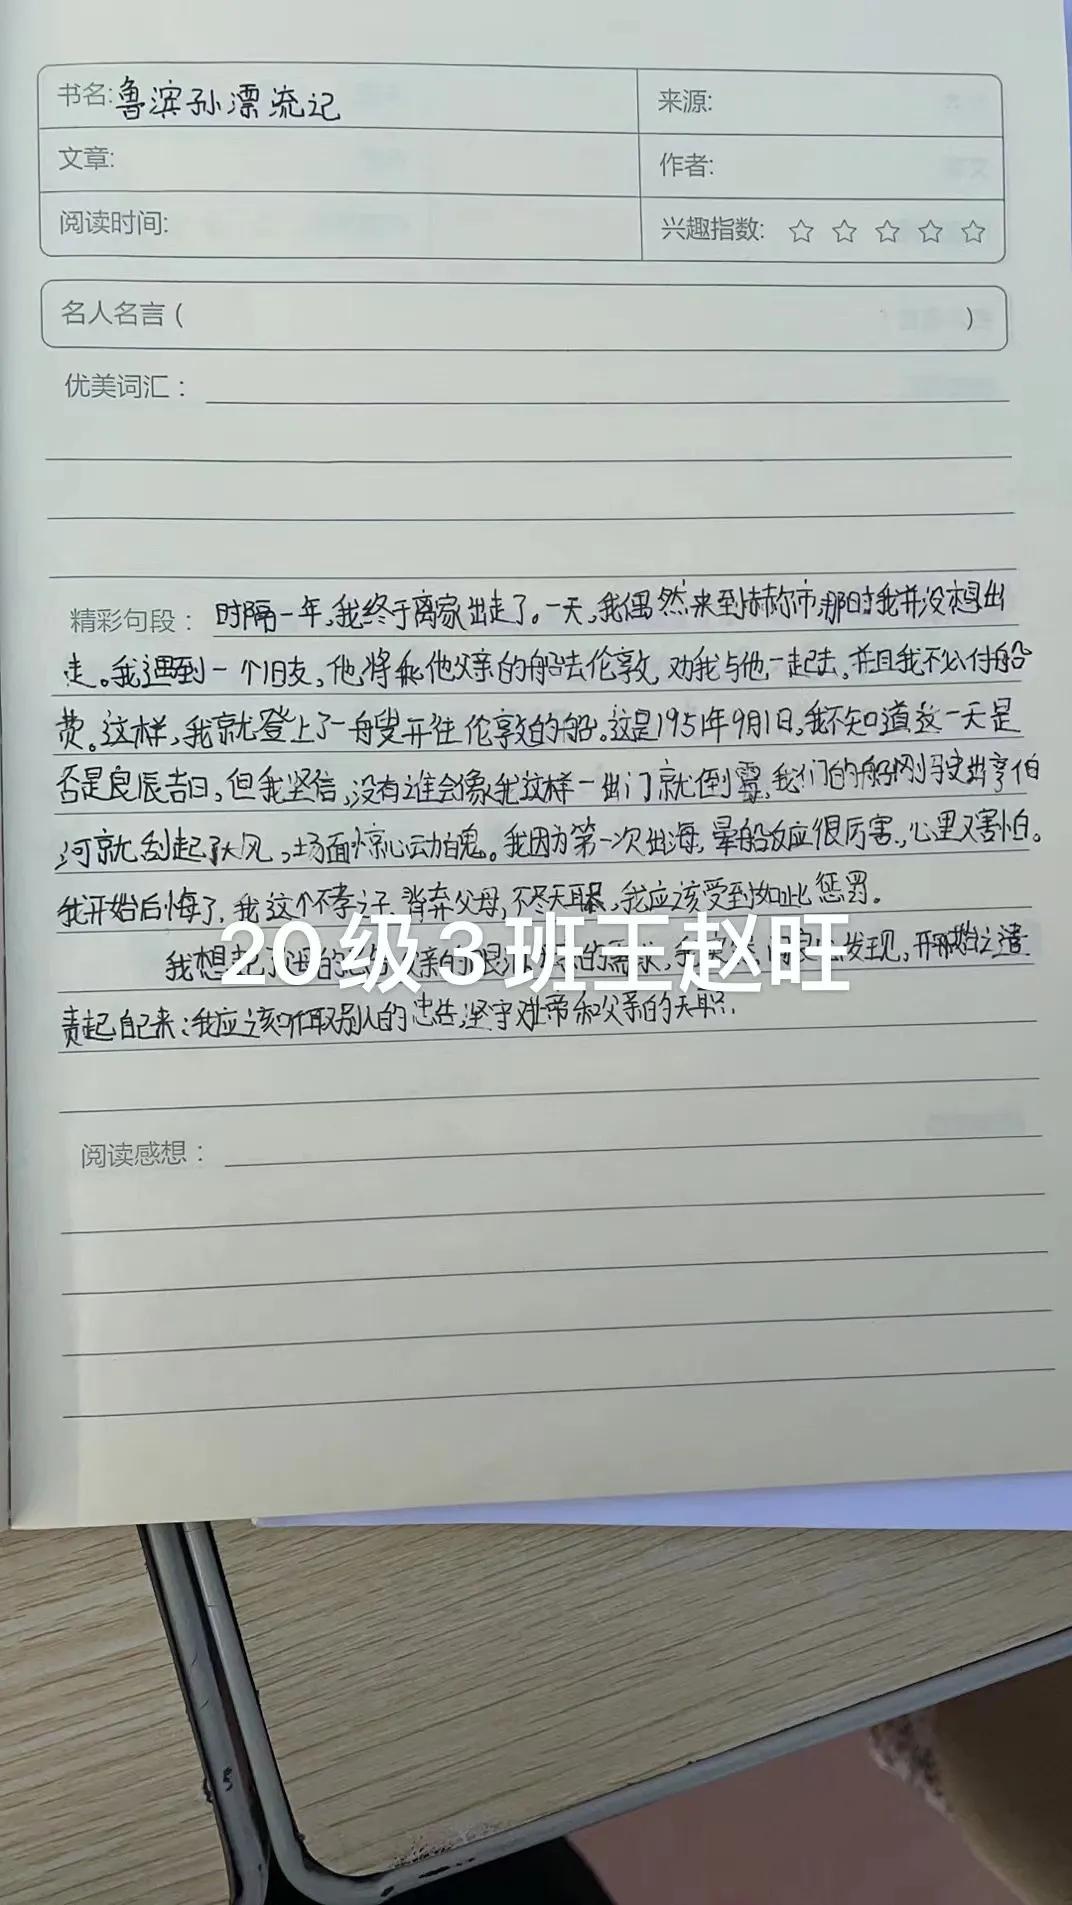 书名:鲁滨孙漂流记
来源:
文章:
作者:
阅读时间:
兴趣指数: ☆ ☆ ☆ ☆ ☆
名人名言 ( )
优美词汇：
精彩句段： 时隔一年,我终于离家出走了。一天,我偶然来到赫尔市,那时我并没想出
走。我遇到一个旧友,他将乘他父亲的船去伦敦,劝我与他一起去,并且我不必付船
费。这样,我就登上了一艘开往伦敦的船。这是1951年9月1日,我不知道这一天是
否是良辰吉日,但我坚信,没有谁会像我这样一出门就倒霉,我们的船刚驶出亨伯
河就刮起了大风,场面惊心动魄。我因为第一次出海,晕船反应很厉害,心里又害怕。
我开始后悔了,我这个不孝之子,背弃父母,不尽天职,我应该受到如此惩罚。
我想起了 的 父亲的 发现,开始 谴
责起自己来:我应该听取别人的忠告,坚守对上帝和父亲的天职.
20级3班王赵旺
阅读感想：